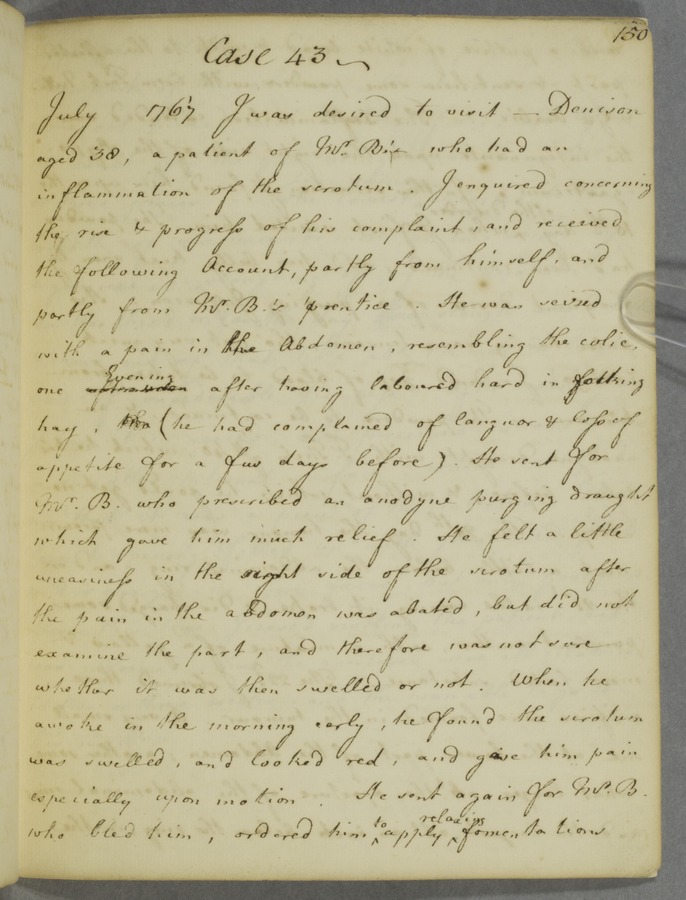 150
Case 43
July 1767 I was desired to visit — Denison
aged 38, a patient of Mr. B's who had an
inflammation of the scrotum. I enquired concerning
the rise & progress of his complaint, and received
the following Account, partly from himself, and
partly from Mr. B.'s 'prentice. He was seized
with a pain in the Abdomen, resembling the colic,
one Evening after having laboured hard in
hay, (he had complained of languor & loss of
appetite for a few days before). He sent for
Mr. B. who prescribed an anodyne purging draught
which gave him much relief. He felt a little
uneasiness in the right side of the scrotum after
the pain in the abdomen was abated, but did not
examine the part, and therefore was not sure
whether it was then swelled or not. When he
awoke in the morning early, he found the scrotum
was swelled, and looked red, and gave him pain
especially upon motion. He sent again for Mr. B.
who bled him, ordered him to apply relaxing fomentations